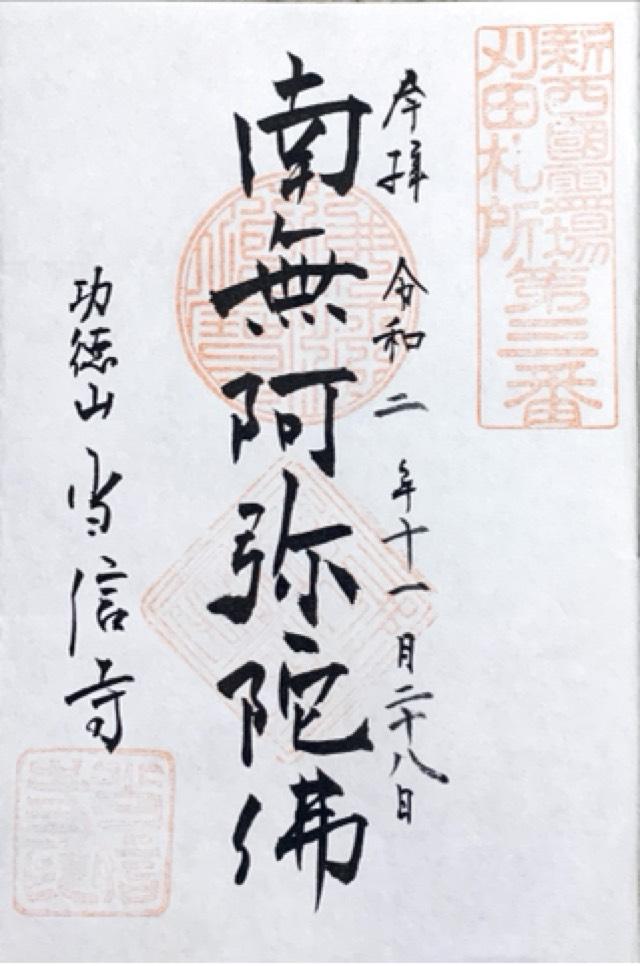 新西國霊場
刈田札所第三番
奉拝 令和二年十一月二十八日
南無阿弥陀佛
功徳山 当信寺